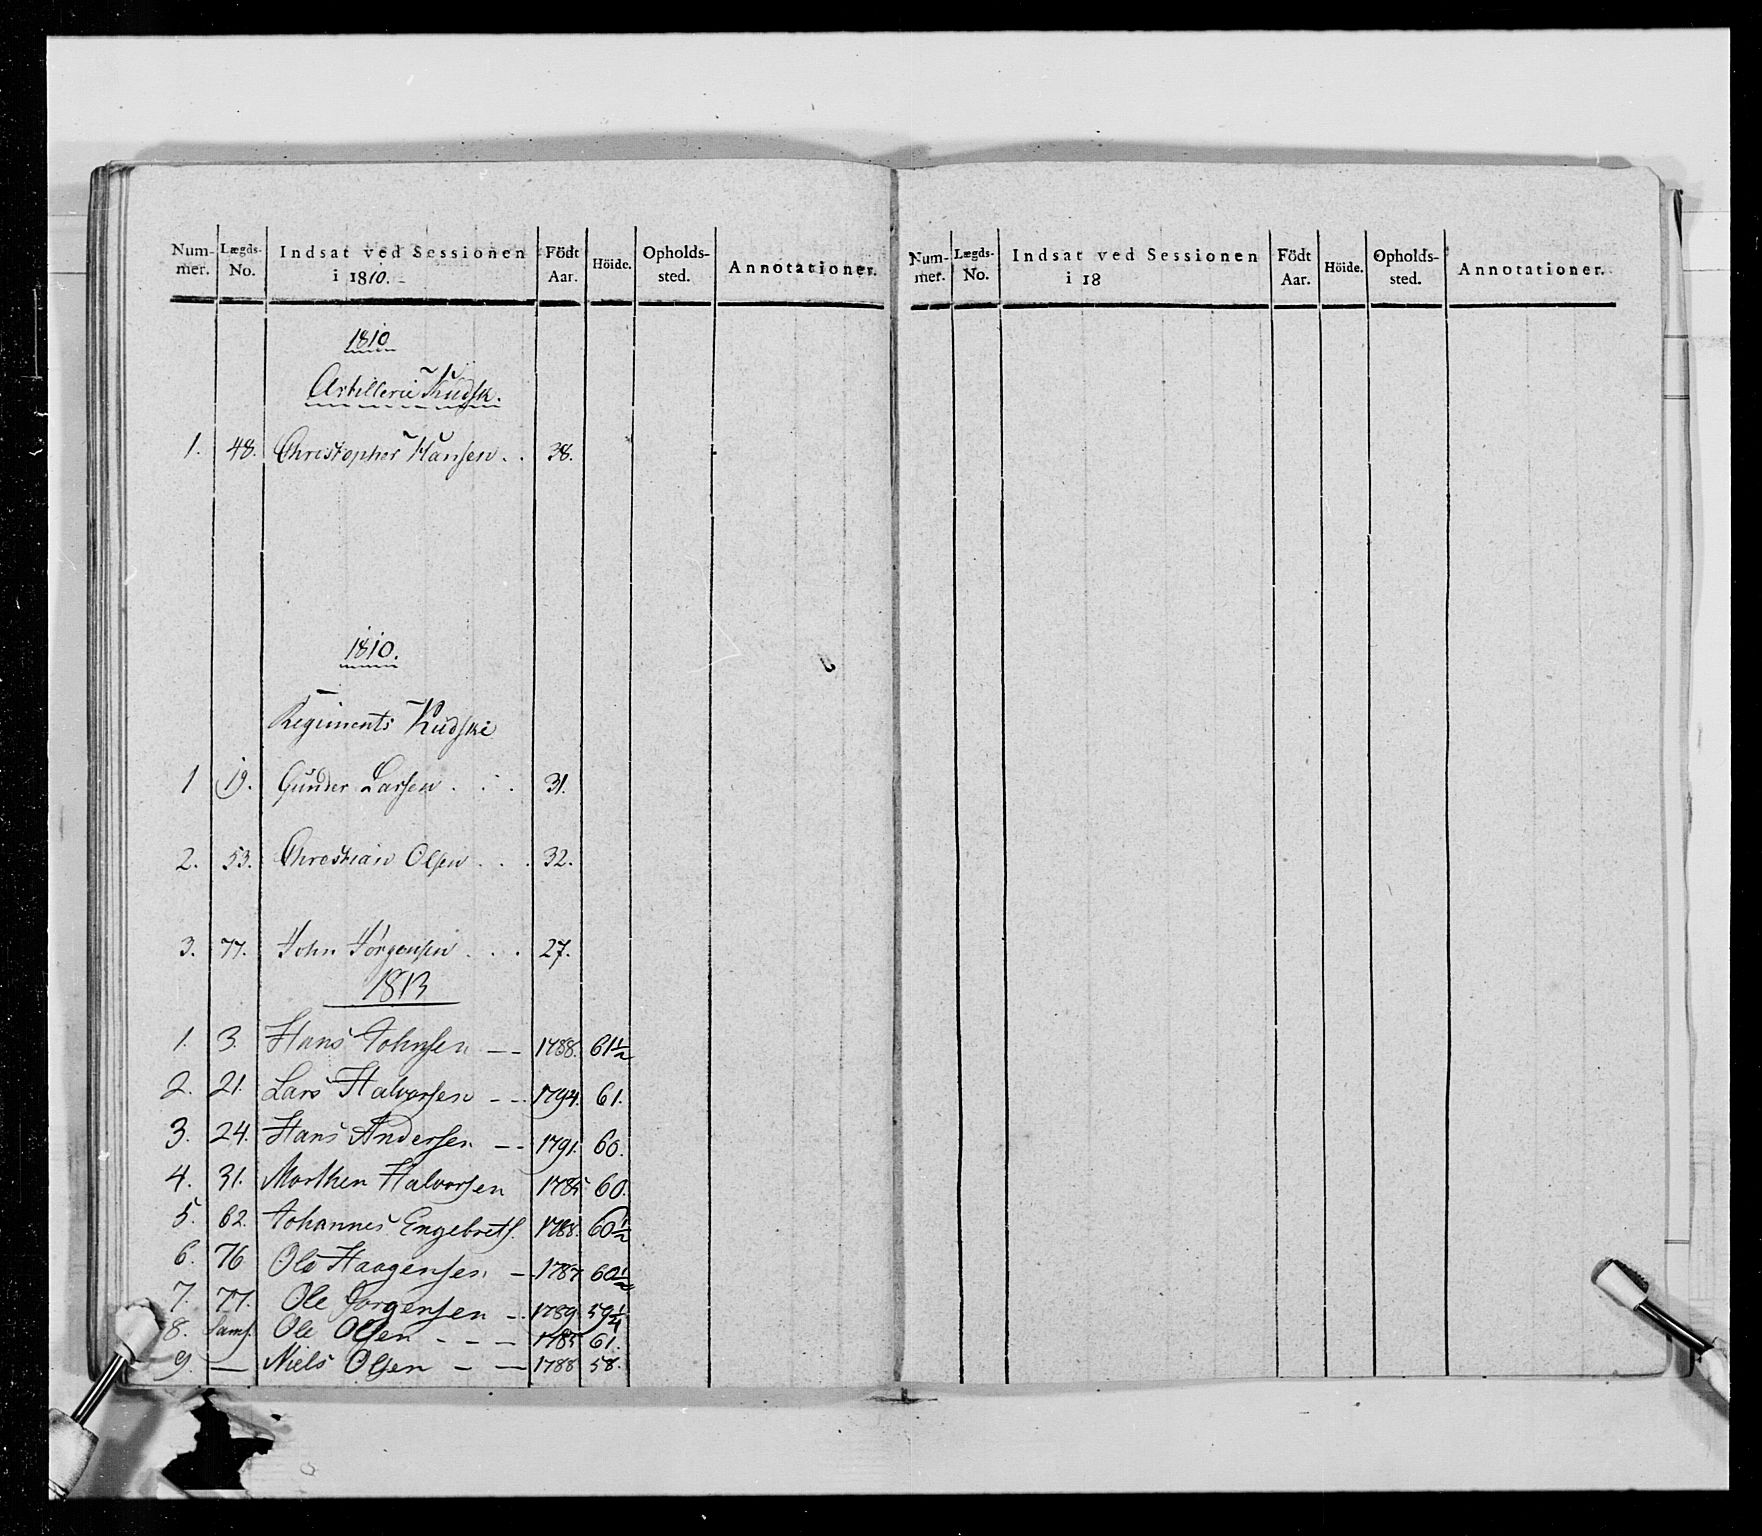 Num- Lægds- Indsat ved Sessionen Födt Höide. Opholds- Annotationer.
mer. No. i 1810. Aar. sted.
1810
Artillerie Kudsk.
1. 48. Christopher Hansen . . 38.
1810.
Regiments Kudske
1 19. Gunder Larsen . . . 31.
2. 53. Christian Olsen . . . 32.
3. 77. John Jörgensen . . . 27.
1813
1. 3. Hans Johnsen – – 1788. 61½
2. 21. Lars Halvorsen – – 1794. 61.
3. 24. Hans Andersen – – 1791. 60.
4. 31. Morthen Halvorsen 1785 60.
5. 62. Johannes Engebrets. 1788. 60½
6. 76 Ole Haagensen – 1787 60½
7. 77. Ole Jorgensen – 1789. 59¼
8. Sams. Ole Olsen – – – 1785 61.
9. — Niels Olsen – – 1788 58.
Num- Lægds- Indsat ved Sessionen Födt Höide. Opholds- Annotationer.
mer. No. i 18 Aar. sted.